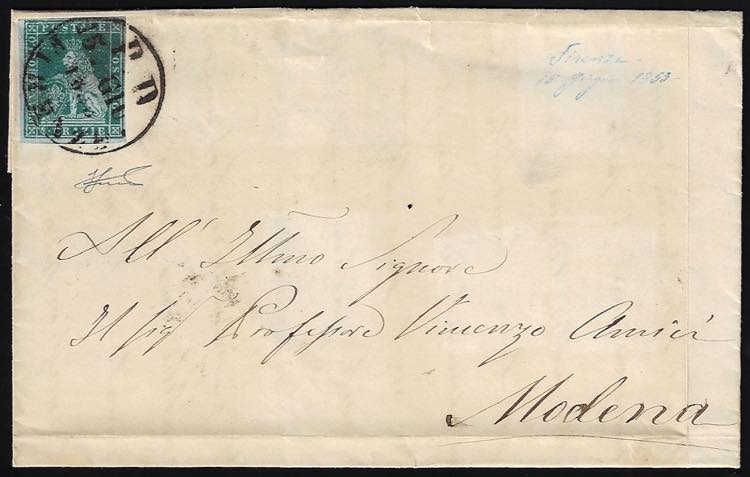 BOLLO POSTALE TOSCANO
4 CRAZIE
Firenze
15 Giugno 1853
All' Illmo Signore
Il Sig Professore Vincenzo Amici
Modena